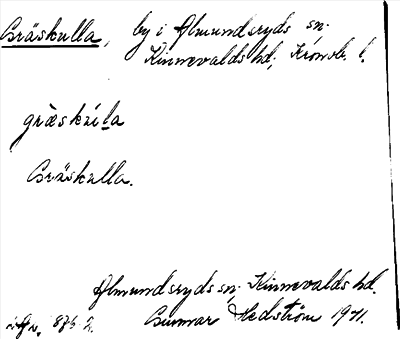 Gräskulla, by i Almundsryds sn.
Kinnevalds hd, Kronob. l.
grä̀skúl̲a
Gräskulla.
Almundsryds sn, Kinnevalds hd.
Gunnar Hedström 1941.